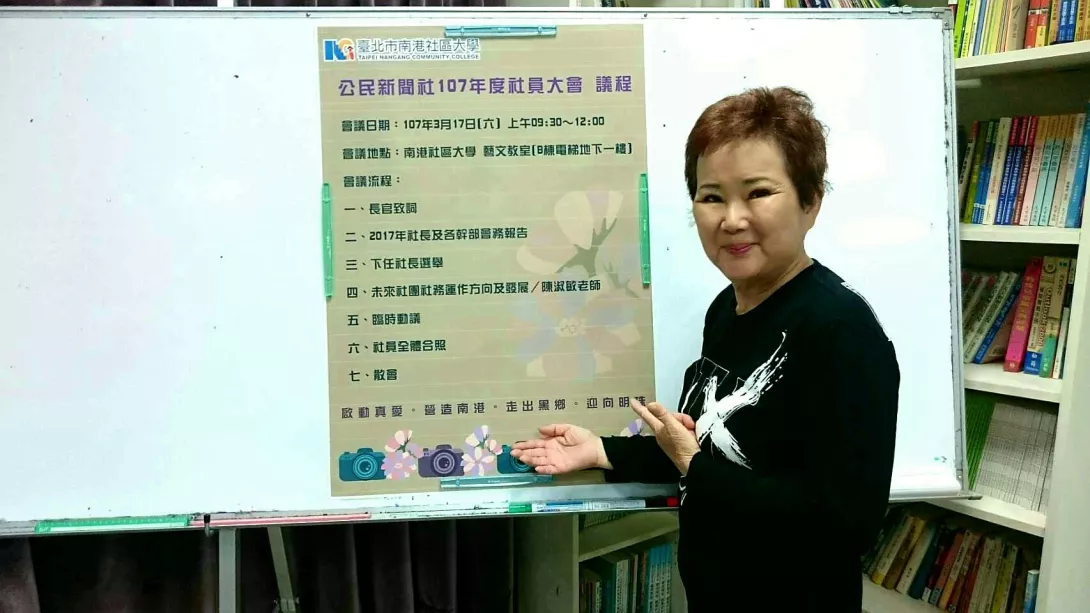 臺北市南港社區大學
TAIPEI NANGANG COMMUNITY COLLEGE
公民新聞社107年度社員大會 議程
會議日期：107年3月17日(六) 上午09:30~12:00
會議地點：南港社區大學 藝文教室(B棟電梯地下一樓)
會議流程：
一、長官致詞
二、2017年社長及各幹部會務報告
三、下任社長選舉
四、未來社團社務運作方向及發展／陳淑敏老師
五、臨時動議
六、社員全體合照
七、散會
啟動真愛。營造南港。走出黑鄉。迎向明珠